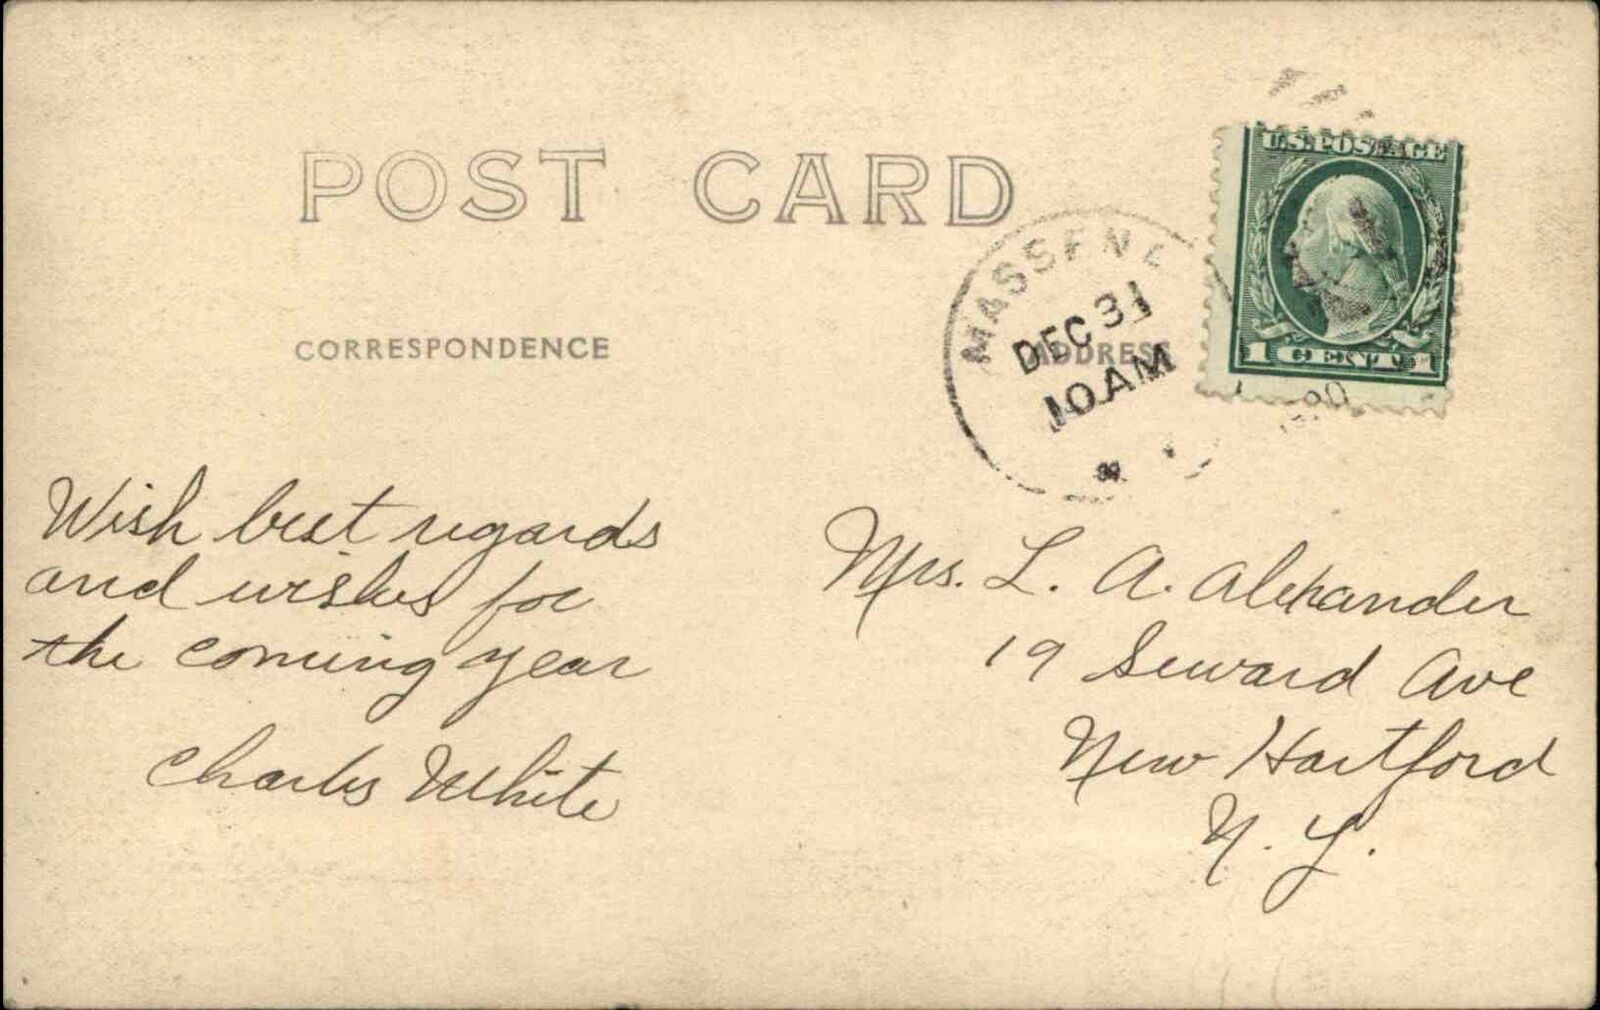 POST CARD
CORRESPONDENCE
ADDRESS
MASSENA
DEC 31
10 AM
U.S. POSTAGE
1 CENT 1
Wish best regards
and wishes for
the coming year
Charles White
Mrs. L. A. Alexander
19 Seward Ave
New Hartford
N. Y.